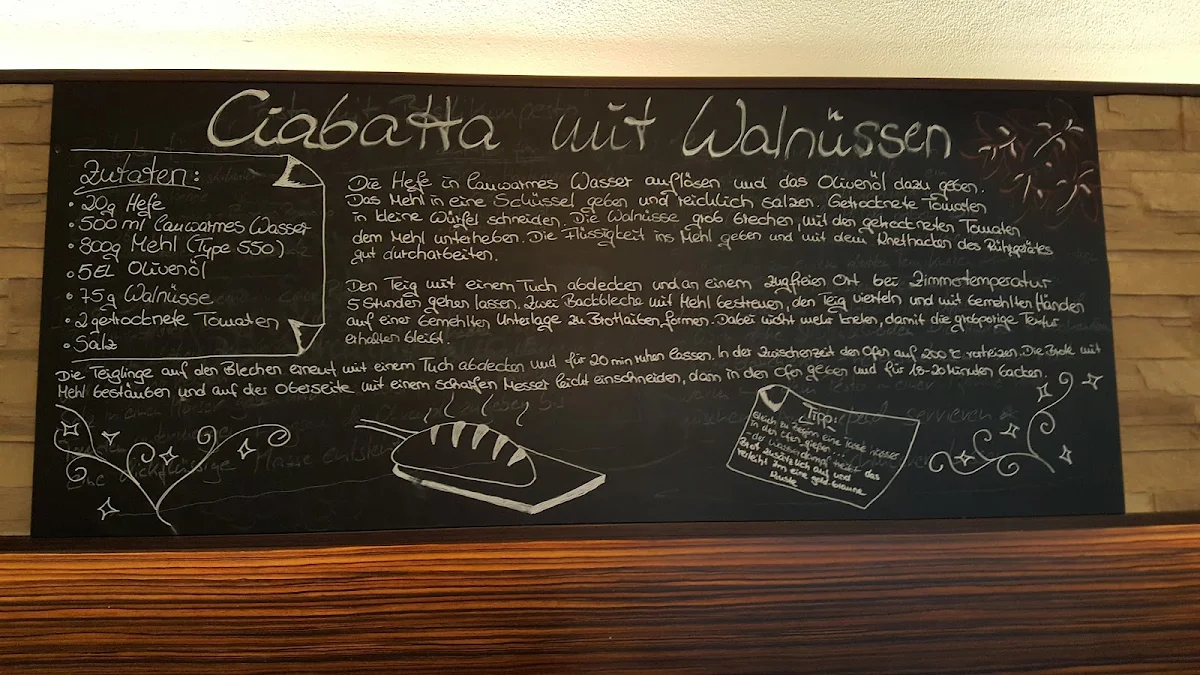 Ciabatta mit Walnüssen
Zutaten:
• 20g Hefe
• 500 ml lauwarmes Wasser
• 800g Mehl (Type 550)
• 5EL Olivenöl
• 75g Walnüsse
• 2 getrocknete Tomaten
• Salz
Die Hefe in lauwarmes Wasser auflösen und das Olivenöl dazu geben.
Das Mehl in eine Schüssel geben und reichlich salzen. Getrocknete Tomaten
in kleine Würfel schneiden. Die Walnüsse grob brechen, mit den getrockneten Tomaten
dem Mehl unterheben. Die Flüssigkeit ins Mehl geben und mit dem Knethacken des Rührgerätes
gut durcharbeiten.
Den Teig mit einem Tuch abdecken und an einem zugfreien Ort bei Zimmertemperatur
5 Stunden gehen lassen. Zwei Backbleche mit Mehl bestreuen, den Teig vierteln und mit bemehlten Händen
auf einer bemehlten Unterlage zu Brotlaiben formen. Dabei nicht mehr kneten, damit die großporige Textur
erhalten bleibt.
Die Teiglinge auf den Blechen erneut mit einem Tuch abdecken und für 20 min ruhen lassen. In der Zwischenzeit den Ofen auf 200°C vorheizen. Die Brote mit
Mehl bestäuben und auf der Oberseite mit einem scharfen Messer leicht einschneiden, dann in den Ofen geben und für 18-20 Minuten backen.
Tipp:
Gleich zu Beginn eine Tasse Wasser
in den Ofen geben...
der Wasserdampf treibt das
Brot zusätzlich auf und
verleiht ihm eine gold-braune
Kruste